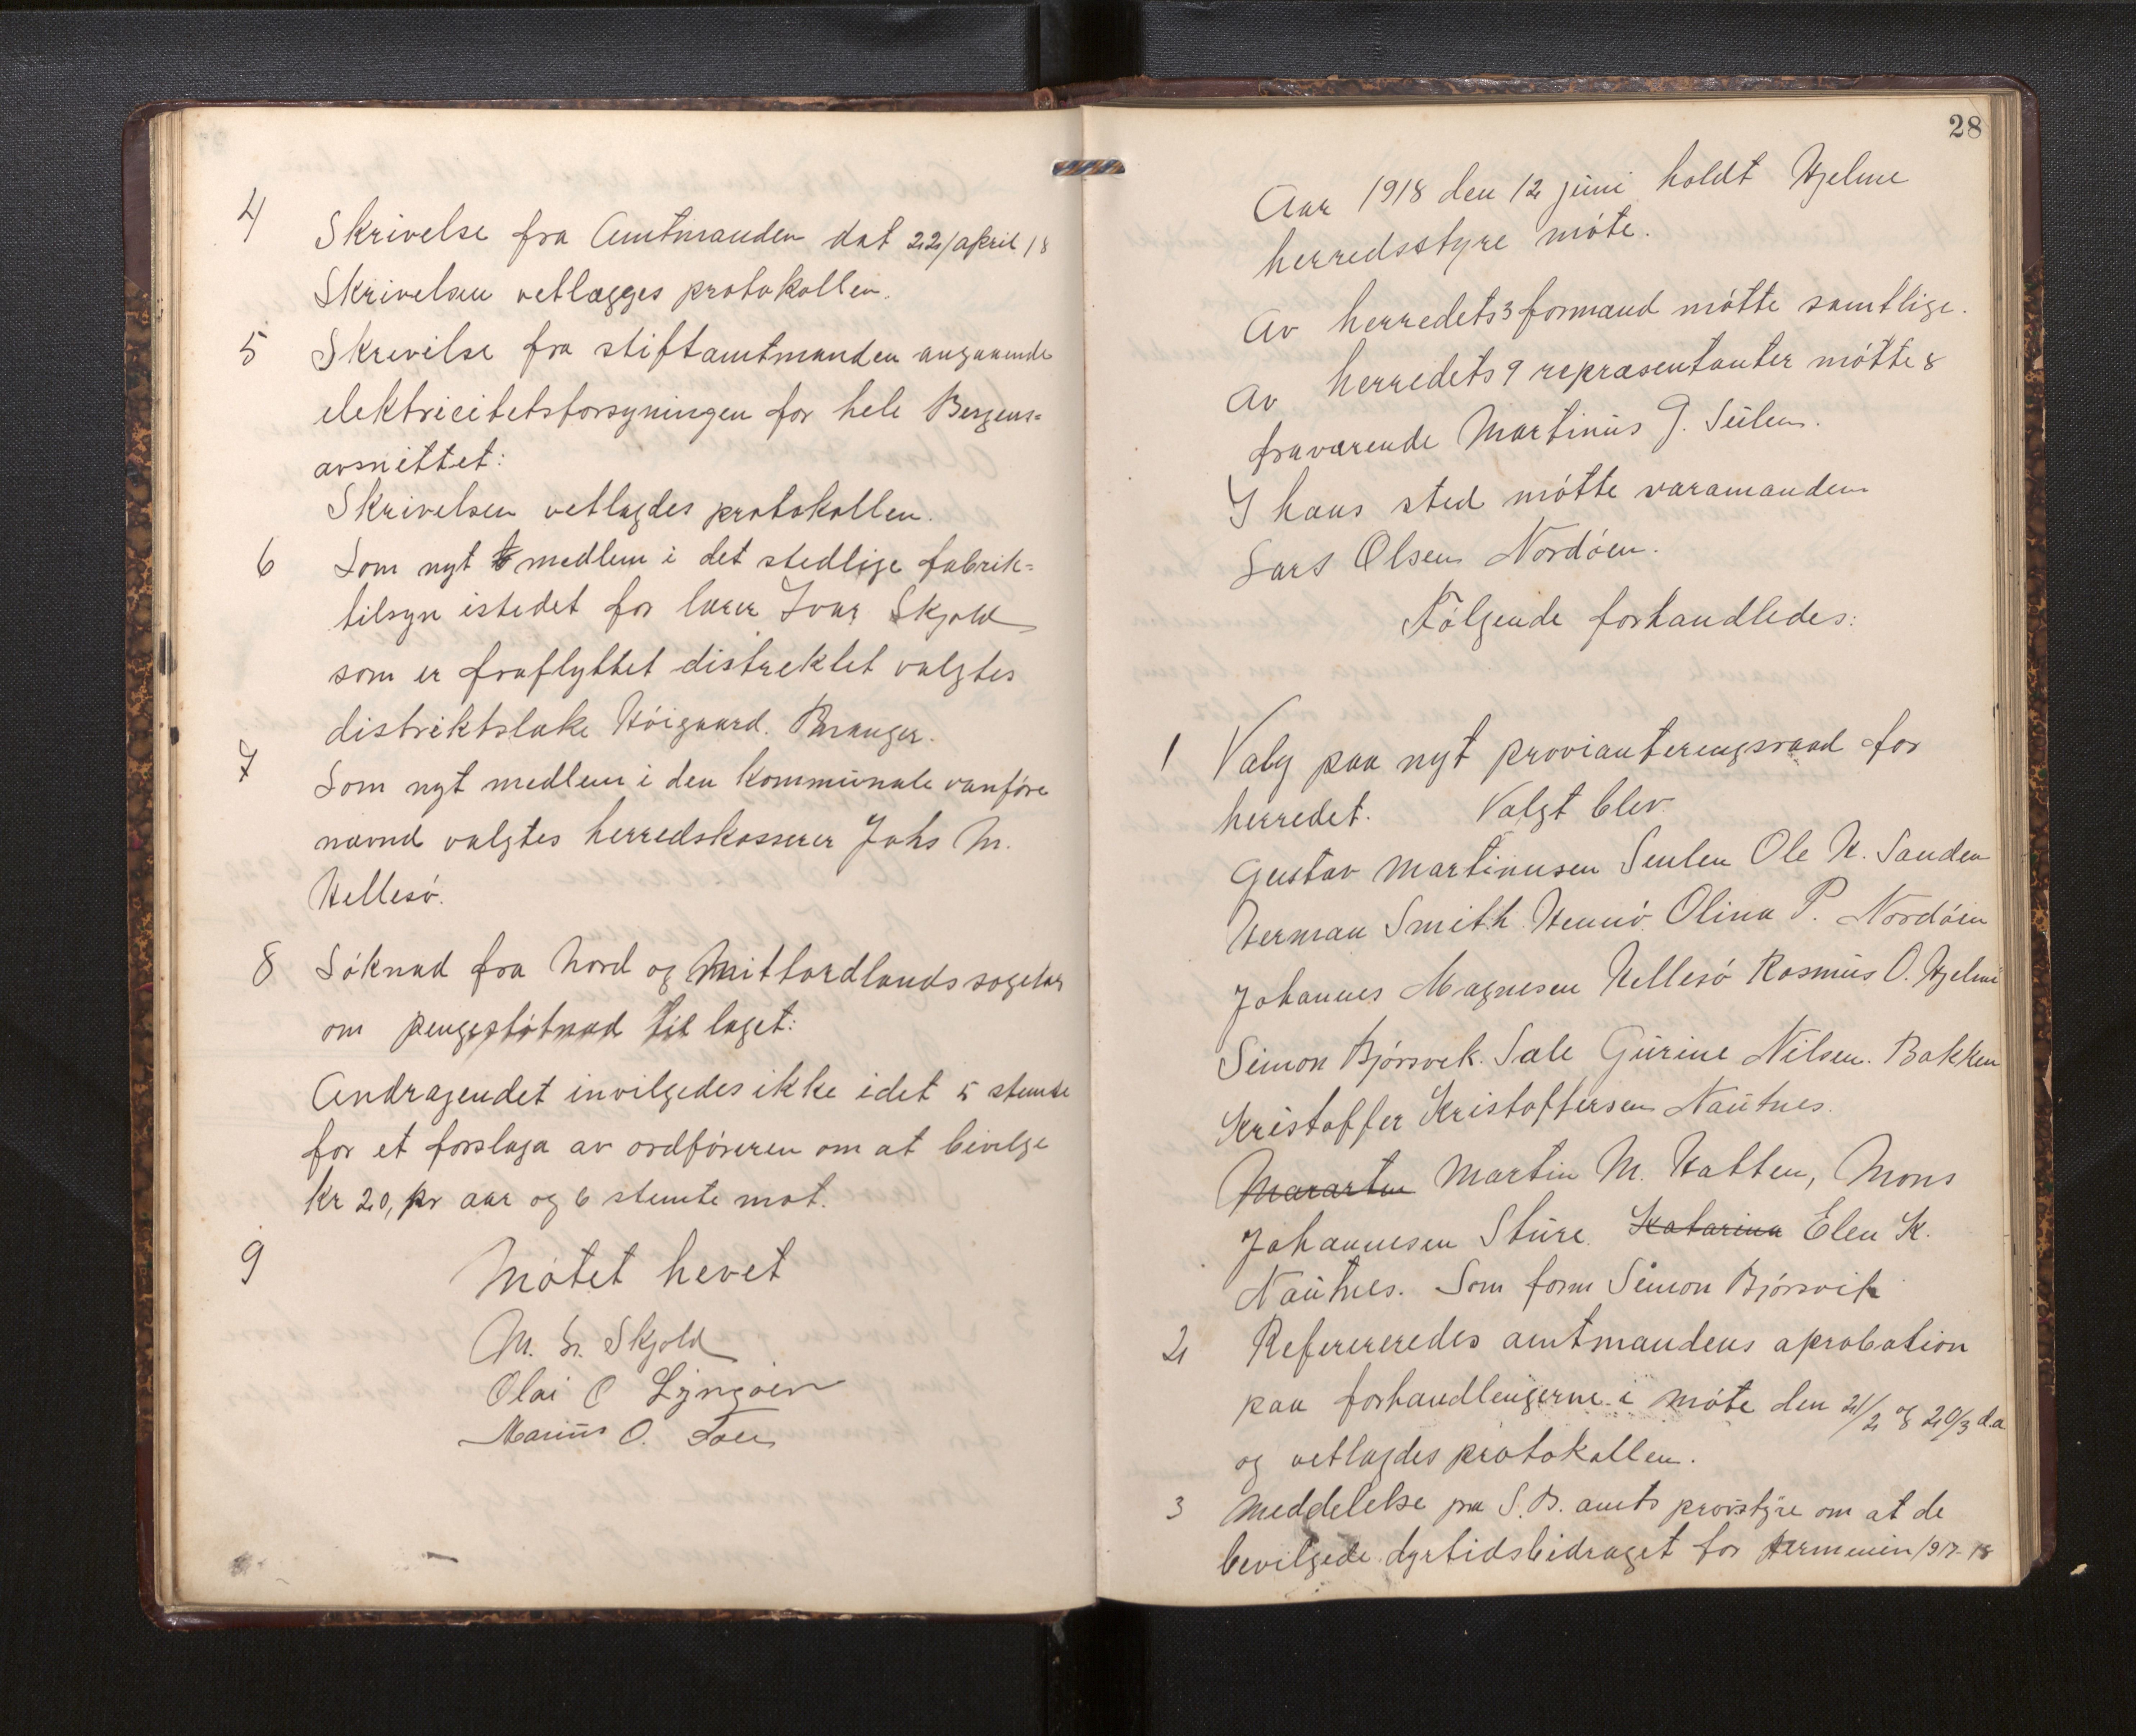 4
Skrivelse fra Amtmanden dat 22/april 18
Skrivelsen vetlægges protokollen.
5
Skrevilse fra stiftamtmanden angaaende
elektricitetsforsyningen for hele Bergens=
avsnittet:
Skrivelsen vetlagdes protokollen.
6
Som nyt medlem i det stedlige fabrik=
tilsyn istedet for lærer Ivar Skjold
som er fraflyttet distrektet valgtes
distriktslæke Höigaard. Manger.
7
Som nyt medlem i den kommunale vanföre
nævnd valgtes herredskasserer Johs M.
Hellesö.
8
Söknad fra Nord og Mitthordlands sogelag
om pengestötnad til laget:
Andragendet invilgedes ikke idet 5 stemte
for et forslaga av ordföreren om at bevilge
kr 20, pr aar og 6 stemte mot.
9
Mötet hevet
M. Skjold
Olai C Lyngöien
Marius O.
28
Aar 1918 den 12 juni holdt Hjelme
herredsstyre möte.
Av herredets 3 formand mötte samtlige.
Av herredets 9 repræsentanter mötte 8
fraværende Martinus J. Seulen.
I hans sted mötte varamanden
Lars Olsen Nordöen.
Følgende forhandledes:
1
Valg paa nyt provianteringsraad for
herredet. Valgt blev
Gustav Martinusen Seulen Ole H. Sanden
Herman Smith Hennö. Olina P. Nordöen
Johannes Magnesen Hellesö Rasmus O. Hjelme
Simon Bjørsvek. Sæle Gurine Nilsen. Bakken
Kristoffer Kristoffersen Nautnes.
Mararten Martin M. Hatten, Mons
Johannesen Sture. Katarina Elen K.
Nautnes. Som form Simon Bjørsvik
2
Refercreredes amtmandens aprobation
paa forhandlengerne i möte den 21/2 og 20/3 d.a
og vetlagdes protokollen.
3
Meddelelse fra S. B. amts provstyre om at de
bevilgede dyrtidsbidraget for termenin 1917-18